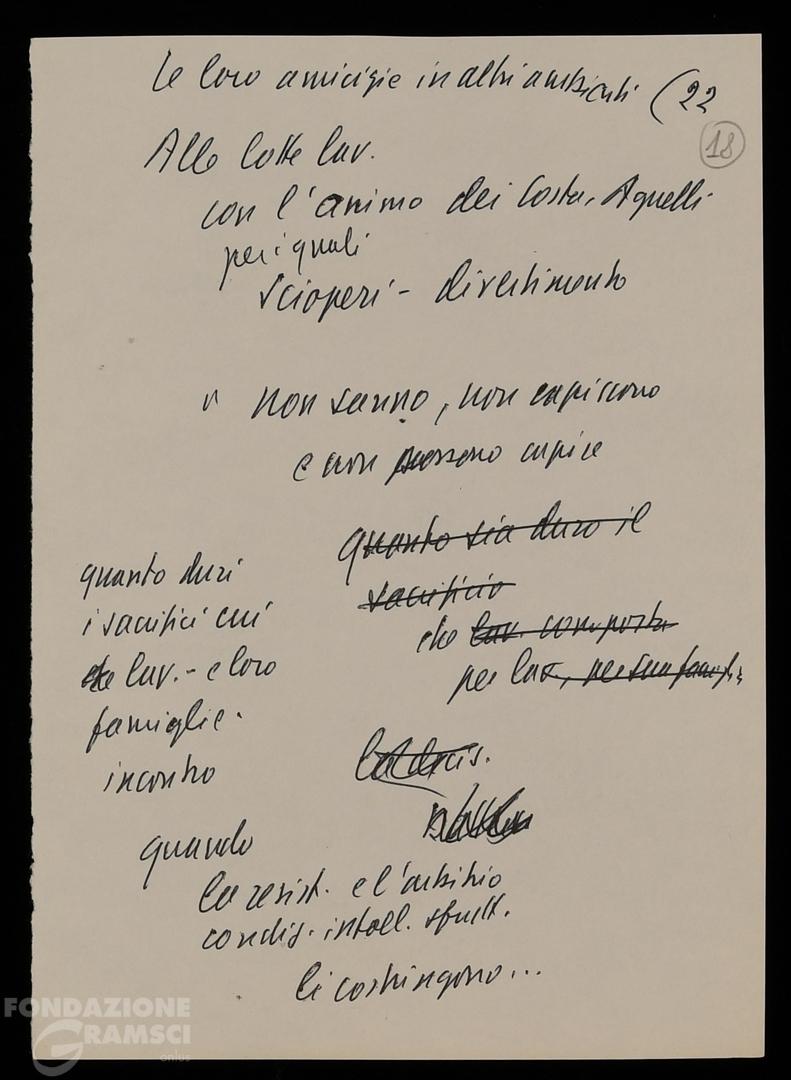 le loro amicizie in altri ambienti (22
18
Alle lotte lav.
con l'animo dei Costa, Agnelli
per i quali
scioperi - divertimento
non sanno, non capiscono
e non possono capire
quanto sia duro il
sacrificio
che lav. comporta
per lav., per sua famigl.
quanto duri
i sacrifici cui
lav. - e loro
famiglie.
incontro
quando
la resist. e l'arbitrio
condiz. intoll. sfrutt.
li costringono...
FONDAZIONE
GRAMSCI
onlus